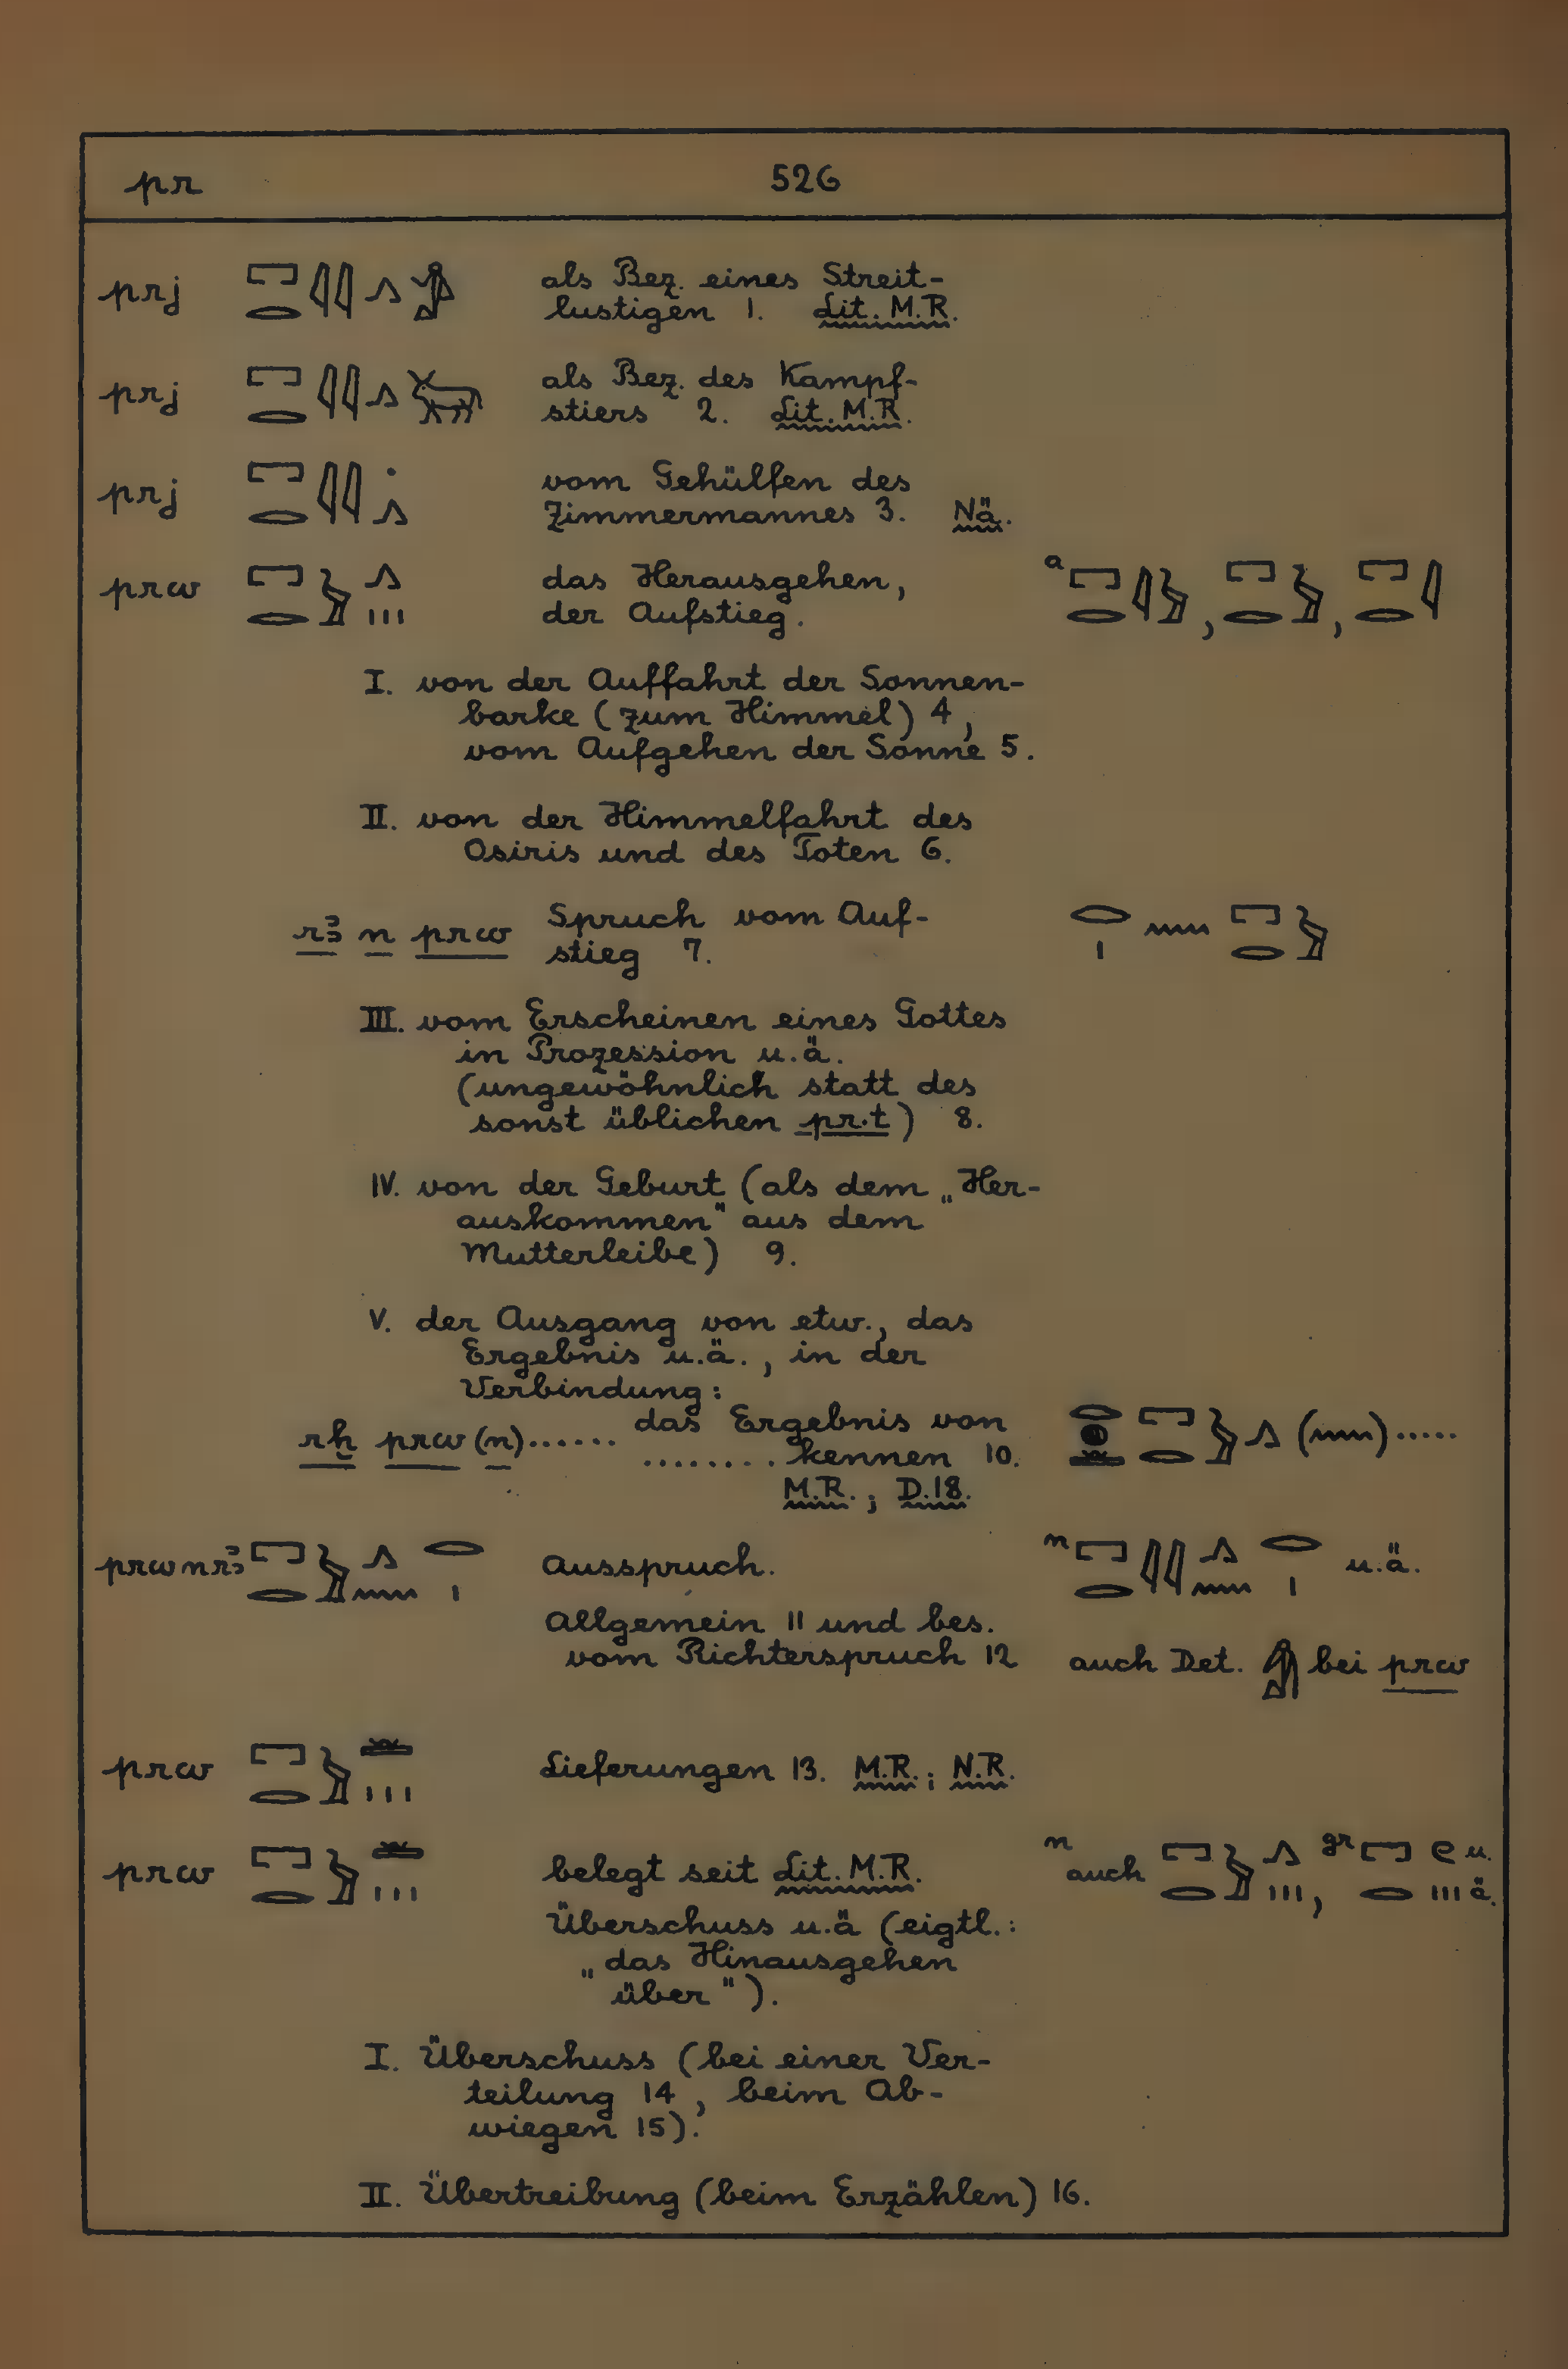 pr 526
prj 𓉐𓂋𓇌𓂻𓀜 als Bez. eines Streit-
lustigen 1. Lit. M.R.
prj 𓉐𓂋𓇌𓂻𓃒 als Bez. des Kampf-
stiers 2. Lit. M.R.
prj 𓉐𓂋𓇌𓂻 vom Gehülfen des
Zimmermannes 3. Nä.
prw 𓉐𓂋𓅱𓂻𓏥 das Herausgehen, a 𓉐𓂋𓇋𓅱, 𓉐𓂋𓅱, 𓉐𓂋𓇋
der Aufstieg.
I. von der Auffahrt der Sonnen-
barke (zum Himmel) 4,
vom Aufgehen der Sonne 5.
II. von der Himmelfahrt des
Osiris und des Toten 6.
rꜣ n prw Spruch vom Auf- 𓂋𓏤𓈖𓉐𓂋𓅱
stieg 7.
III. vom Erscheinen eines Gottes
in Prozession u.ä.
(ungewöhnlich statt des
sonst üblichen pr.t) 8.
IV. von der Geburt (als dem „Her-
auskommen" aus dem
Mutterleibe) 9.
V. der Ausgang von etw., das
Ergebnis u.ä., in der
Verbindung:
rḫ prw (n)...... das Ergebnis von 𓂋𓐍𓏛𓉐𓂋𓅱𓂻(𓈖).....
........kennen 10.
M.R.; D.18.
prw n rꜣ 𓉐𓂋𓅱𓂻𓈖𓂋𓏤 Ausspruch. n 𓉐𓂋𓇌𓂻𓈖𓂋𓏤 u.ä.
Allgemein 11 und bes.
vom Richterspruch 12 auch Det. 𓀁 bei prw
prw 𓉐𓂋𓅱𓏛𓏥 Lieferungen 13. M.R.; N.R.
prw 𓉐𓂋𓅱𓏛𓏥 belegt seit Lit. M.R. n auch 𓉐𓂋𓅱𓂻𓏥, gr 𓉐𓂋𓏲𓏥 u.ä.
Überschuss u.ä (eigtl.:
„das Hinausgehen
über").
I. Überschuss (bei einer Ver-
teilung 14, beim Ab-
wiegen 15).
II. Übertreibung (beim Erzählen) 16.